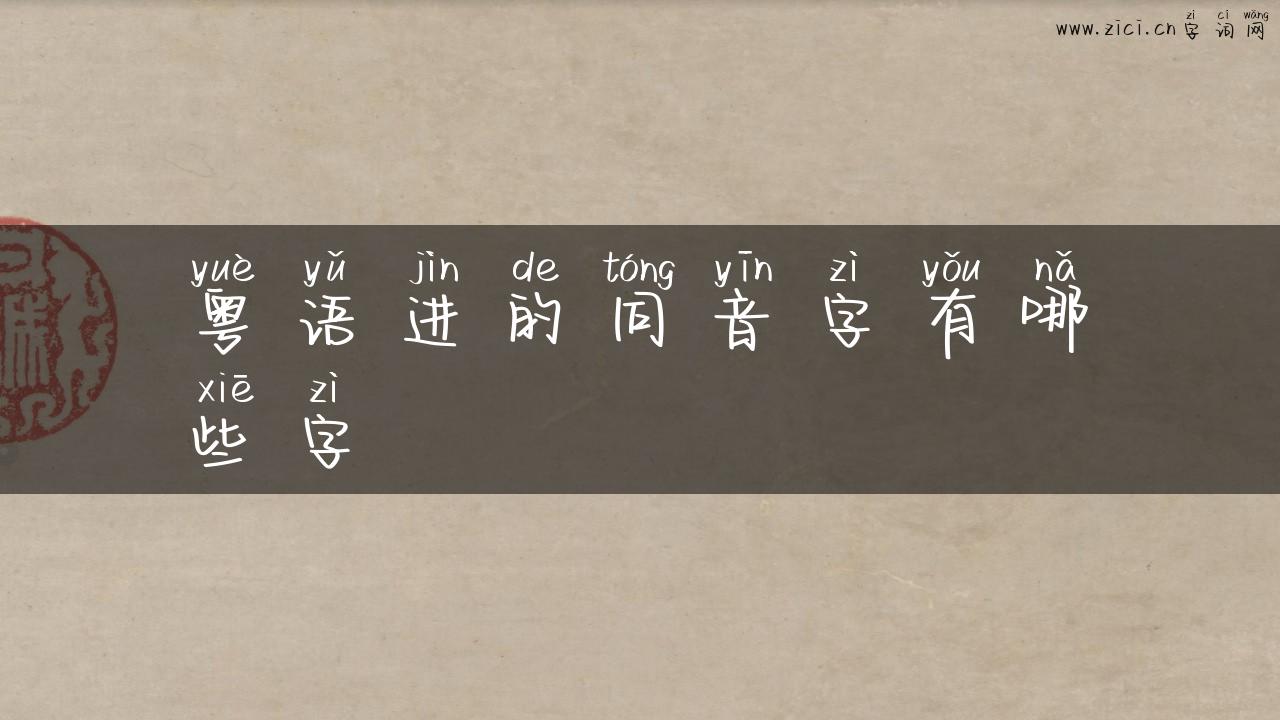 zì cí wǎng
www.zici.cn 字 词 网
yuè yǔ jìn de tóng yīn zì yǒu nǎ
粤 语 进 的 同 音 字 有 哪
xiē zì
些 字